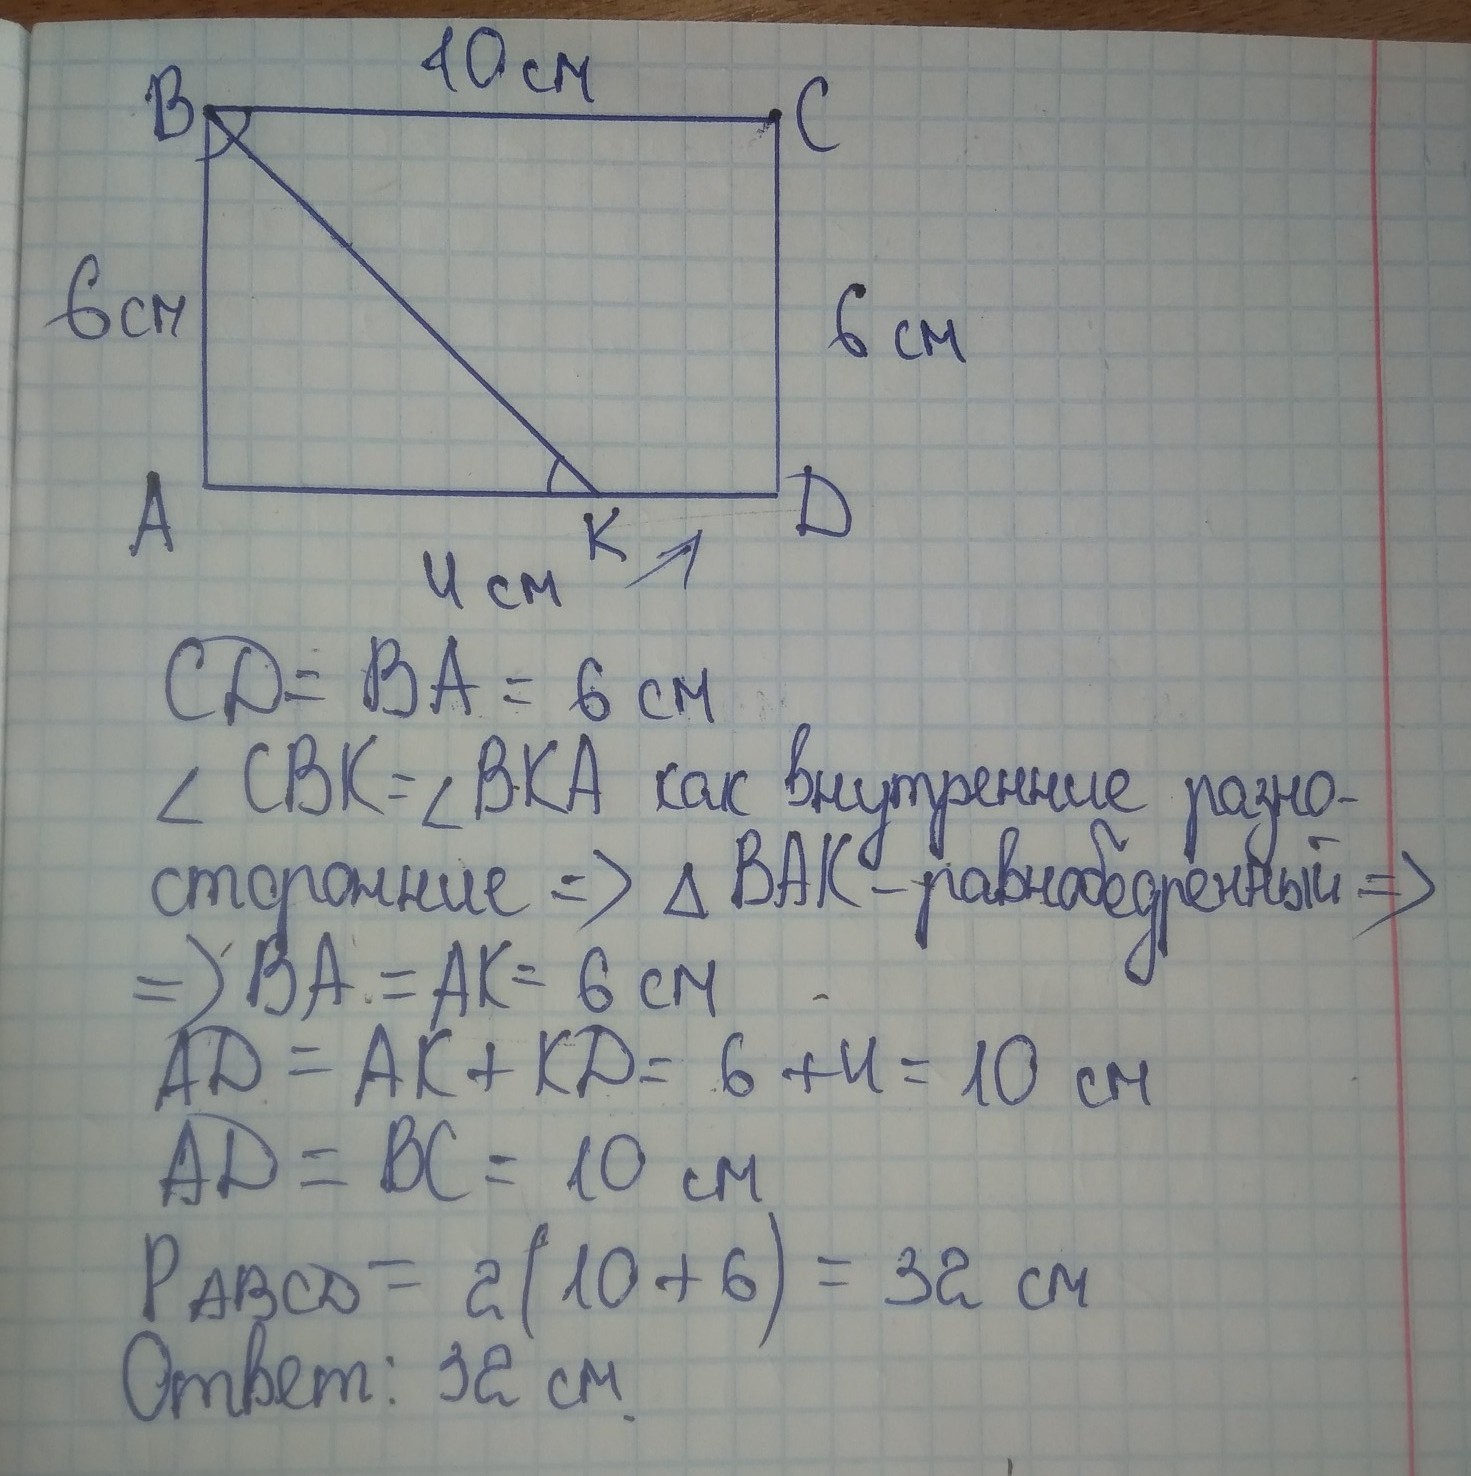 10 см
B
C
6 см
6 см
A
K
D
4 см
CD = BA = 6 см
∠ CBK = ∠ BKA как внутренние разно-
сторонние => △ BAK - равнобедренный =>
=> BA = AK = 6 см
AD = AK + KD = 6 + 4 = 10 см
AD = BC = 10 см
P ABCD = 2(10 + 6) = 32 см
Ответ: 32 см.